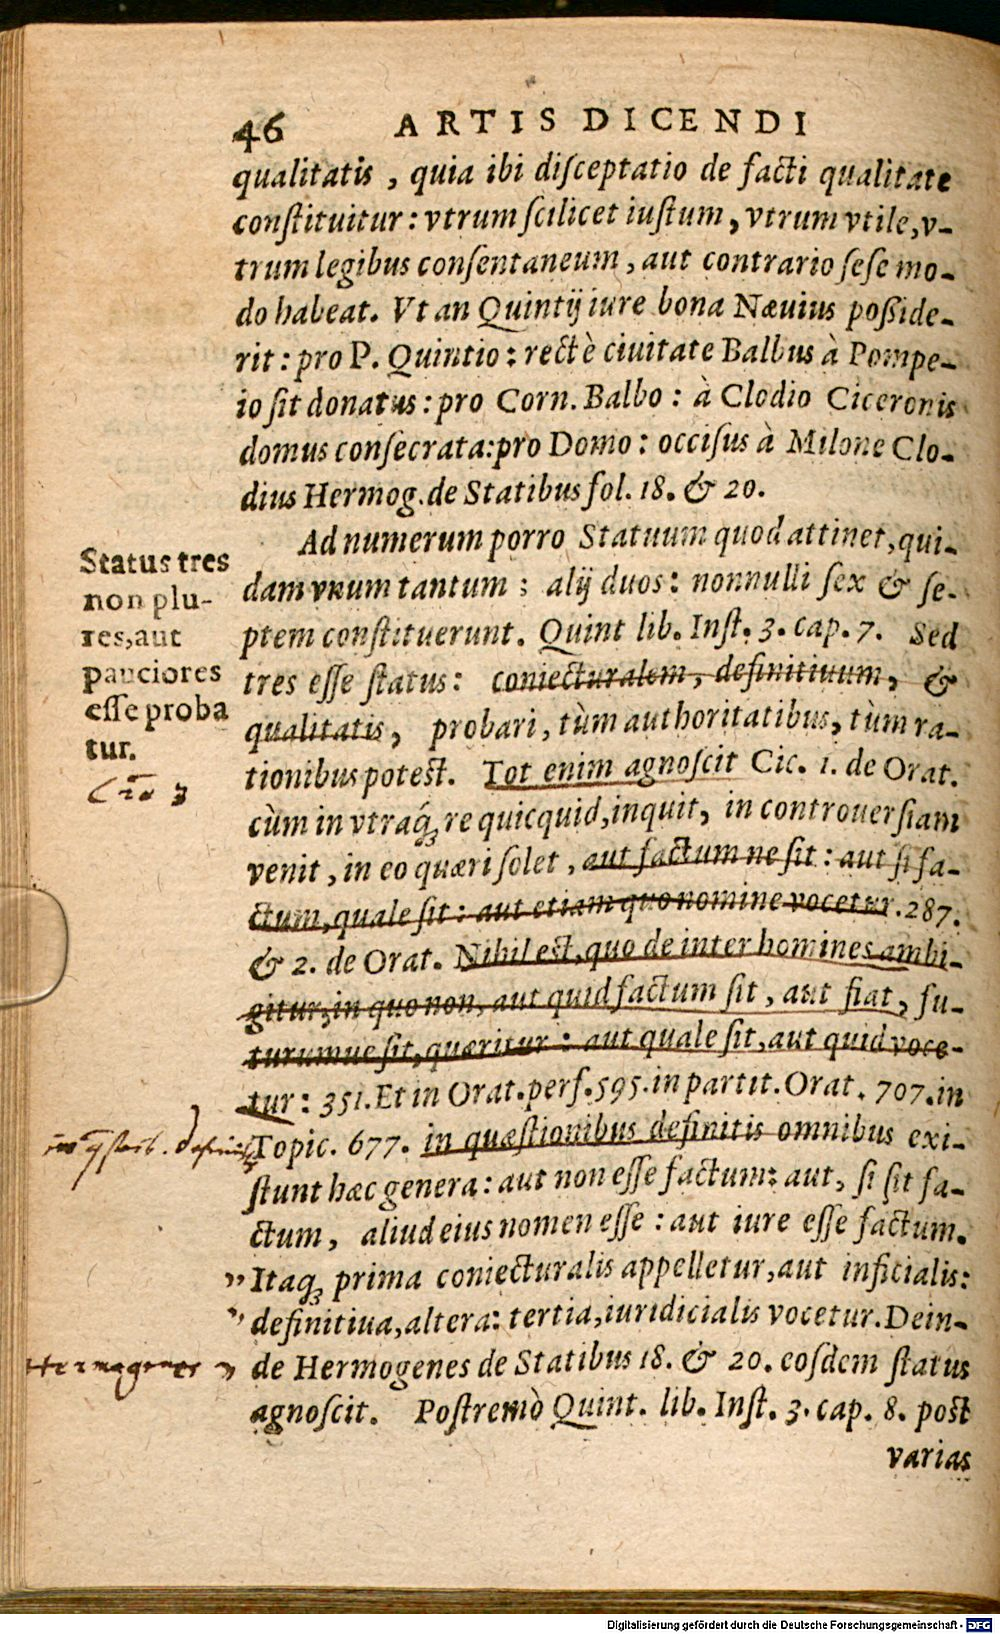 46 ARTIS DICENDI
qualitatis , quia ibi diſceptatio de facti qualitate
conſtituitur : vtrum ſcilicet iuſtum , vtrum vtile, v-
trum legibus conſentaneum , aut contrario ſeſe mo-
do habeat. Vt an Quintij iure bona Næuius poßide-
rit : pro P. Quintio : rectè ciuitate Balbus à Pompe-
io ſit donatus : pro Corn. Balbo : à Clodio Ciceronis
domus conſecrata: pro Domo : occiſus à Milone Clo-
dius Hermog. de Statibus fol. 18. & 20.
Ad numerum porro Statuum quod attinet, qui-
dam vnum tantum ; alij duos : nonnulli ſex & ſe-
ptem conſtituerunt. Quint lib. Inſt. 3. cap. 7. Sed
tres eſſe ſtatus : coniecturalem , definitiuum , &
qualitatis , probari , tùm authoritatibus, tùm ra-
tionibus poteſt. Tot enim agnoſcit Cic. 1. de Orat.
cùm in vtraq́ꝫ re quicquid, inquit, in controuerſiam
venit , in eo quæri ſolet , aut factum ne ſit : aut ſi fa-
ctum, quale ſit : aut etiam quo nomine vocetur. 287.
& 2. de Orat. Nihil eſt, quo de inter homines ambi-
gitur, in quo non, aut quid factum ſit , aut fiat, fu-
turumue ſit, quæritur : aut quale ſit, aut quid voce-
tur : 351. Et in Orat. perf. 595. in partit. Orat. 707. in
Topic. 677. in quæſtionibus definitis omnibus exi-
ſtunt hæc genera : aut non eſſe factum: aut, ſi ſit fa-
ctum, aliud eius nomen eſſe : aut iure eſſe factum.
" Itaqꝫ prima coniecturalis appelletur, aut inficialis:
" definitiua, altera: tertia, iuridicialis vocetur. Dein-
de Hermogenes de Statibus 18. & 20. eoſdem ſtatus
agnoſcit. Poſtremò Quint. lib. Inſt. 3. cap. 8. poſt
varias
Status tres
non plu-
res, aut
pauciores
eſſe proba
tur.
3
Hermogenes
Digitalisierung gefördert durch die Deutsche Forschungsgemeinschaft - DFG